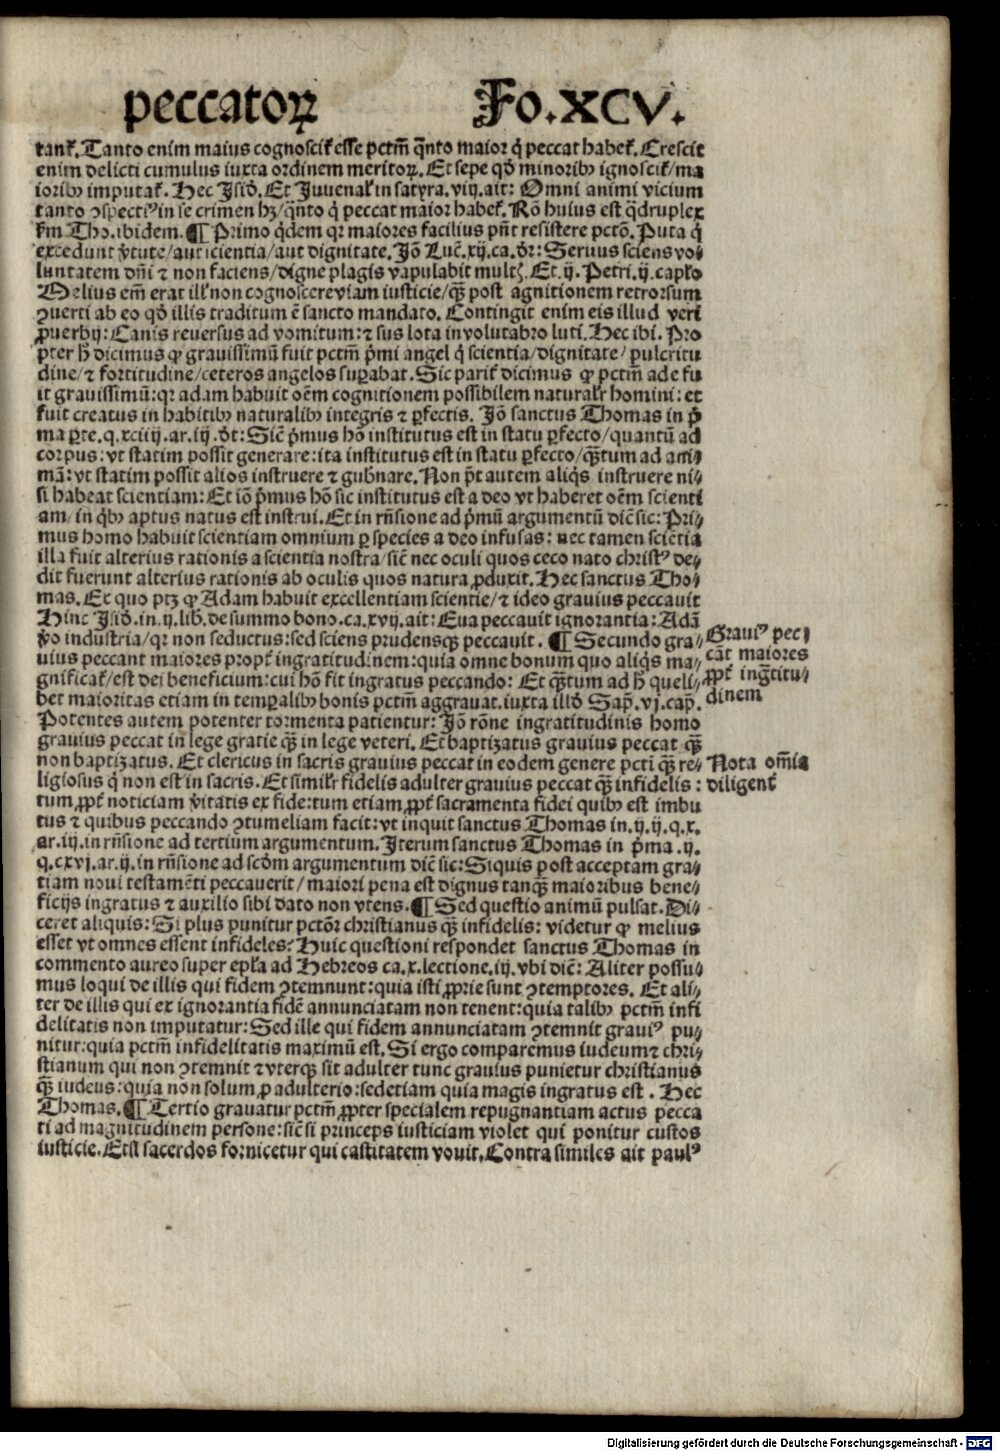 peccatoꝝ Fo.XCV.
tanť. Tanto enim maius cognosciť esse pctm̄ q̄nto maior q̇ peccat habeť. Crescit
enim delicti cumulus iuxta ordinem meritoꝝ. Et sepe qđ minoribꝰ ignosciť/ ma
ioribꝰ imputať. Hec Jsiđ. Et Juuenaľ in satyra. viij. ait: Omni animi vicium
tanto ꝯspectiꝰ in se crimen hꝫ/ q̄nto q̇ peccat maior habeť. Rō huius est q̄druplex
fm Tho. ibidem. ¶ Primo q̇dem qꝛ maiores facilius pn̄t resistere pctō. Puta q̇
excedunt v̓tute/ aut scientia/ aut dignitate. Jō Luč. xij. ca. đr: Seruus sciens vo⸗
luntatem dn̄i ⁊ non faciens/ digne plagis vapulabit multꝭ. Et. ij. Petri. ij. capľo
Melius em̄ erat ilľ non cognoscere viam iusticie/ qꝫ̄ post agnitionem retrorsum
ꝯuerti ab eo qđ illis traditum ē sancto mandato. Contingit enim eis illud veri
ꝓuerbij: Canis reuersus ad vomitum: ⁊ sus lota in volutabro luti. Hec ibi. Pro
pter ħ dicimus ꝙ grauissimū fuit pctm̄ p̓mi angeľ q̇ scientia/ dignitate/ pulcritu
dine/ ⁊ fortitudine/ ceteros angelos suꝑabat. Sic pariť dicimus ꝙ pctm̄ ade fu
it grauissimū: qꝛ adam habuit oēm cognitionem possibilem naturalr̄ homini: et
fuit creatus in habitibꝰ naturalibꝰ integris ⁊ ꝑfectis. Jō sanctus Thomas in p̓
ma ꝑte. q. xciiij. ar. iij. đt: Sicē p̓mus hō institutus est in statu ꝑfecto/ quantū ad
corpus: vt statim possit generare: ita institutus est in statu ꝑfecto/ qꝫ̄tum ad ani
mā: vt statim possit alios instruere ⁊ gubn̄are. Non pōt autem aliq̇s instruere ni⸗
si habeat scientiam: Et iō p̓mus hō sic institutus est a deo vt haberet oēm scienti
am/ in q̇bꝰ aptus natus est instrui. Et in rn̄sione ad p̓mū argumentū dicē sic: Pri⸗
mus homo habuit scientiam omnium ꝑ species a deo infusas: nec tamen sciētia
illa fuit alterius rationis a scientia nostra/ sicē nec oculi quos ceco nato christꝰ de⸗
dit fuerunt alterius rationis ab oculis quos natura ꝓduxit. Hec sanctus Tho⸗
mas. Ex quo ptꝫ ꝙ Adam habuit excellentiam scientie/ ⁊ ideo grauius peccauit
Hinc Jsiđ. in. ij. lib. de summo bono. ca. xvij. ait: Eua peccauit ignorantia: Adā
v̓o industria/ qꝛ non seductus: sed sciens prudensqꝫ peccauit. ¶ Secundo gra⸗
uius peccant maiores propť ingratitudinem: quia omne bonum quo aliq̇s ma⸗
gnificať/ est dei beneficium: cui hō fit ingratus peccando: Et qꝫ̄tum ad ħ queli⸗
bet maioritas etiam in temꝑalibꝰ bonis pctm̄ aggrauat. iuxta illđ Sap̄. vj. cap̄.
Potentes autem potenter tormenta patientur: Jō rōne ingratitudinis homo
grauius peccat in lege gratie qꝫ̄ in lege veteri. Et baptizatus grauius peccat qꝫ̄
non baptizatus. Et clericus in sacris grauius peccat in eodem genere pcti qꝫ̄ re⸗
ligiosus q̇ non est in sacris. Et similr̄ fidelis adulter grauius peccat qꝫ̄ infidelis:
tum ꝓpť noticiam v̓itatis ex fide: tum etiam ꝓpť sacramenta fidei quibꝰ est imbu
tus ⁊ quibus peccando ꝯtumeliam facit: vt inquit sanctus Thomas in. ij. ij. q. x.
ar. iij. in rn̄sione ad tertium argumentum. Jterum sanctus Thomas in p̓ma. ij.
q. cxvj. ar. ij. in rn̄sione ad scđm argumentum dicē sic: Siquis post acceptam gra⸗
tiam noui testamēti peccauerit/ maiori pena est dignus tanqꝫ̄ maioribus bene⸗
ficijs ingratus ⁊ auxilio sibi dato non vtens. ¶ Sed questio animū pulsat. Di⸗
ceret aliquis: Si plus punitur pctōr christianus qꝫ̄ infidelis: videtur ꝙ melius
esset vt omnes essent infideles? Huic questioni respondet sanctus Thomas in
commento aureo super epľa ad Hebreos ca. x. lectione. iij. vbi dicē: Aliter possu⸗
mus loqui de illis qui fidem ꝯtemnunt: quia isti ꝓprie sunt ꝯtemptores. Et ali⸗
ter de illis qui ex ignorantia fidē annunciatam non tenent: quia talibꝰ pctm̄ infi
delitatis non imputatur: Sed ille qui fidem annunciatam ꝯtemnit grauiꝰ pu⸗
nitur: quia pctm̄ infidelitatis maximū est. Si ergo comparemus iudeum ⁊ chri⸗
stianum qui non ꝯtemnit ⁊ vterqꝫ sit adulter tunc grauius punietur christianus
qꝫ̄ iudeus: quia non solum ꝓ adulterio: sed etiam quia magis ingratus est. Hec
Thomas. ¶ Tertio grauatur pctm̄ ꝓpter specialem repugnantiam actus pecca
ti ad magnitudinem persone: sicē si princeps iusticiam violet qui ponitur custos
iusticie. Et si sacerdos fornicetur qui castitatem vouit. Contra similes ait paulꝰ
Grauiꝰ pec⸗
cāt maiores
ꝓpť ingr̄titu⸗
dinem
Nota om̄ia
diligenť
Digitalisierung gefördert durch die Deutsche Forschungsgemeinschaft - DFG